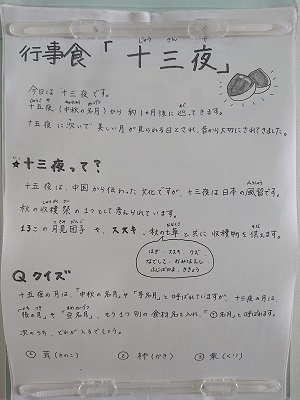 じゅう さん や
行事食「十三夜」
今日は十三夜です。
十五夜(中秋の名月)から約1ヶ月後に巡ってきます。
十五夜に次いで美しい月が見られる日とされ、昔から大切にされてきました。
★十三夜って?
十五夜は、中国から伝わった文化ですが、十三夜は日本の風習です。
秋の収穫祭の1つとして考えられています。
13この月見団子や、ススキ、秋の七草と共に収穫物を供えます。
はぎ・ススキ・クズ
なでしこ・おみなえし
ふじばかま・ききょう
Q クイズ
十五夜の月は、「中秋の名月」や「芋名月」と呼ばれていますが、十三夜の月は、
「後の月」や「豆名月」、もう1つ別の食材名を入れ、「①名月」と呼ばれます。
次のうち、どれが入るでしょう。
① 茸(きのこ) ② 柿(かき) ③ 栗(くり)